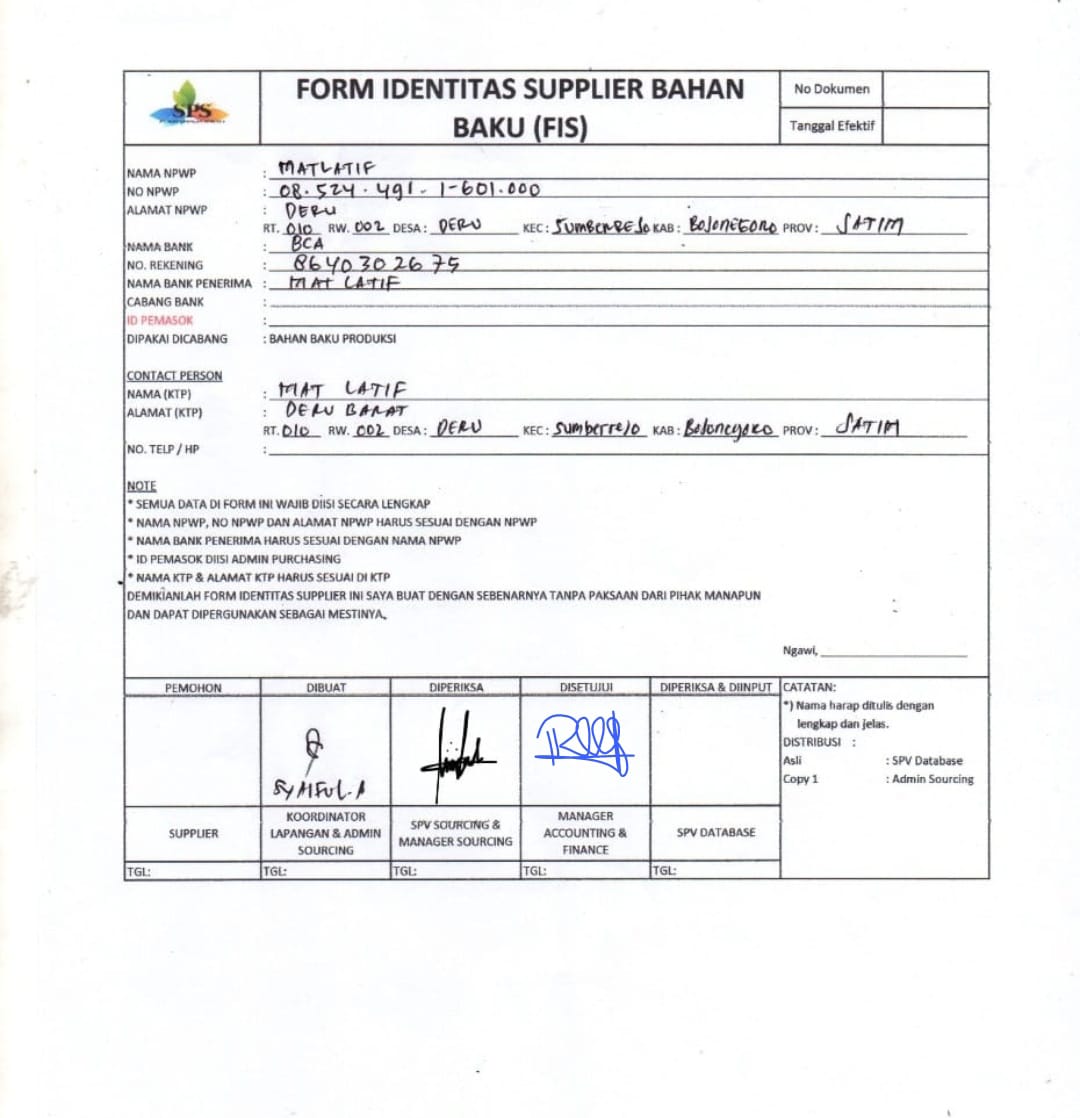 SPS
FORM IDENTITAS SUPPLIER BAHAN
BAKU (FIS)
No Dokumen
Tanggal Efektif
NAMA NPWP : MATLATIF
NO NPWP : 08.524.491-1-601.000
ALAMAT NPWP : DERU
RT. 010 RW. 002 DESA: DERU KEC: SUMBERREJO KAB: BOJONEGORO PROV: JATIM
NAMA BANK : BCA
NO. REKENING : 8640302675
NAMA BANK PENERIMA : MAT LATIF
CABANG BANK :
ID PEMASOK :
DIPAKAI DICABANG : BAHAN BAKU PRODUKSI
CONTACT PERSON
NAMA (KTP) : MAT LATIF
ALAMAT (KTP) : DERU BARAT
RT. 010 RW. 002 DESA: DERU KEC: Sumberrejo KAB: Bojonegoro PROV: JATIM
NO. TELP / HP :
NOTE
* SEMUA DATA DI FORM INI WAJIB DIISI SECARA LENGKAP
* NAMA NPWP, NO NPWP DAN ALAMAT NPWP HARUS SESUAI DENGAN NPWP
* NAMA BANK PENERIMA HARUS SESUAI DENGAN NAMA NPWP
* ID PEMASOK DIISI ADMIN PURCHASING
* NAMA KTP & ALAMAT KTP HARUS SESUAI DI KTP
DEMIKIANLAH FORM IDENTITAS SUPPLIER INI SAYA BUAT DENGAN SEBENARNYA TANPA PAKSAAN DARI PIHAK MANAPUN
DAN DAPAT DIPERGUNAKAN SEBAGAI MESTINYA.
Ngawi,
PEMOHON DIBUAT DIPERIKSA DISETUJUI DIPERIKSA & DIINPUT
SYAIFUL.A
SUPPLIER
KOORDINATOR
LAPANGAN & ADMIN
SOURCING
SPV SOURCING &
MANAGER SOURCING
MANAGER
ACCOUNTING &
FINANCE
SPV DATABASE
TGL: TGL: TGL: TGL: TGL:
CATATAN:
*) Nama harap ditulis dengan
lengkap dan jelas.
DISTRIBUSI :
Asli : SPV Database
Copy 1 : Admin Sourcing